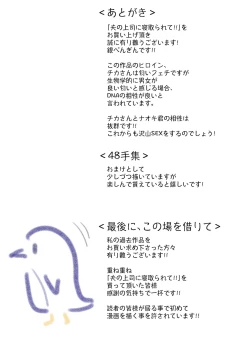 ＜あとがき＞
「夫の上司に寝取られて!!」を
お買い上げ頂き
誠に有り難うございます!
銀ぺんぎんです!!
この作品のヒロイン、
チカさんは匂いフェチですが
生物学的に男女が
良い匂いと感じる場合、
DNAの相性が良いと
言われています。
チカさんとナオキ君の相性は
抜群です!!
これからも沢山SEXをするのでしょう!
＜48手集＞
おまけとして
少しづつ描いていますが
楽しんで貰えていると嬉しいです!
＜最後に、この場を借りて＞
私の過去作品を
お買い求め下さった方々
有り難うございます!!
重ね重ね
「夫の上司に寝取られて!!」を
買って頂いた皆様
感謝の気持ちで一杯です!!
読者の皆様が居る事で初めて
漫画を描く事を許されています!!